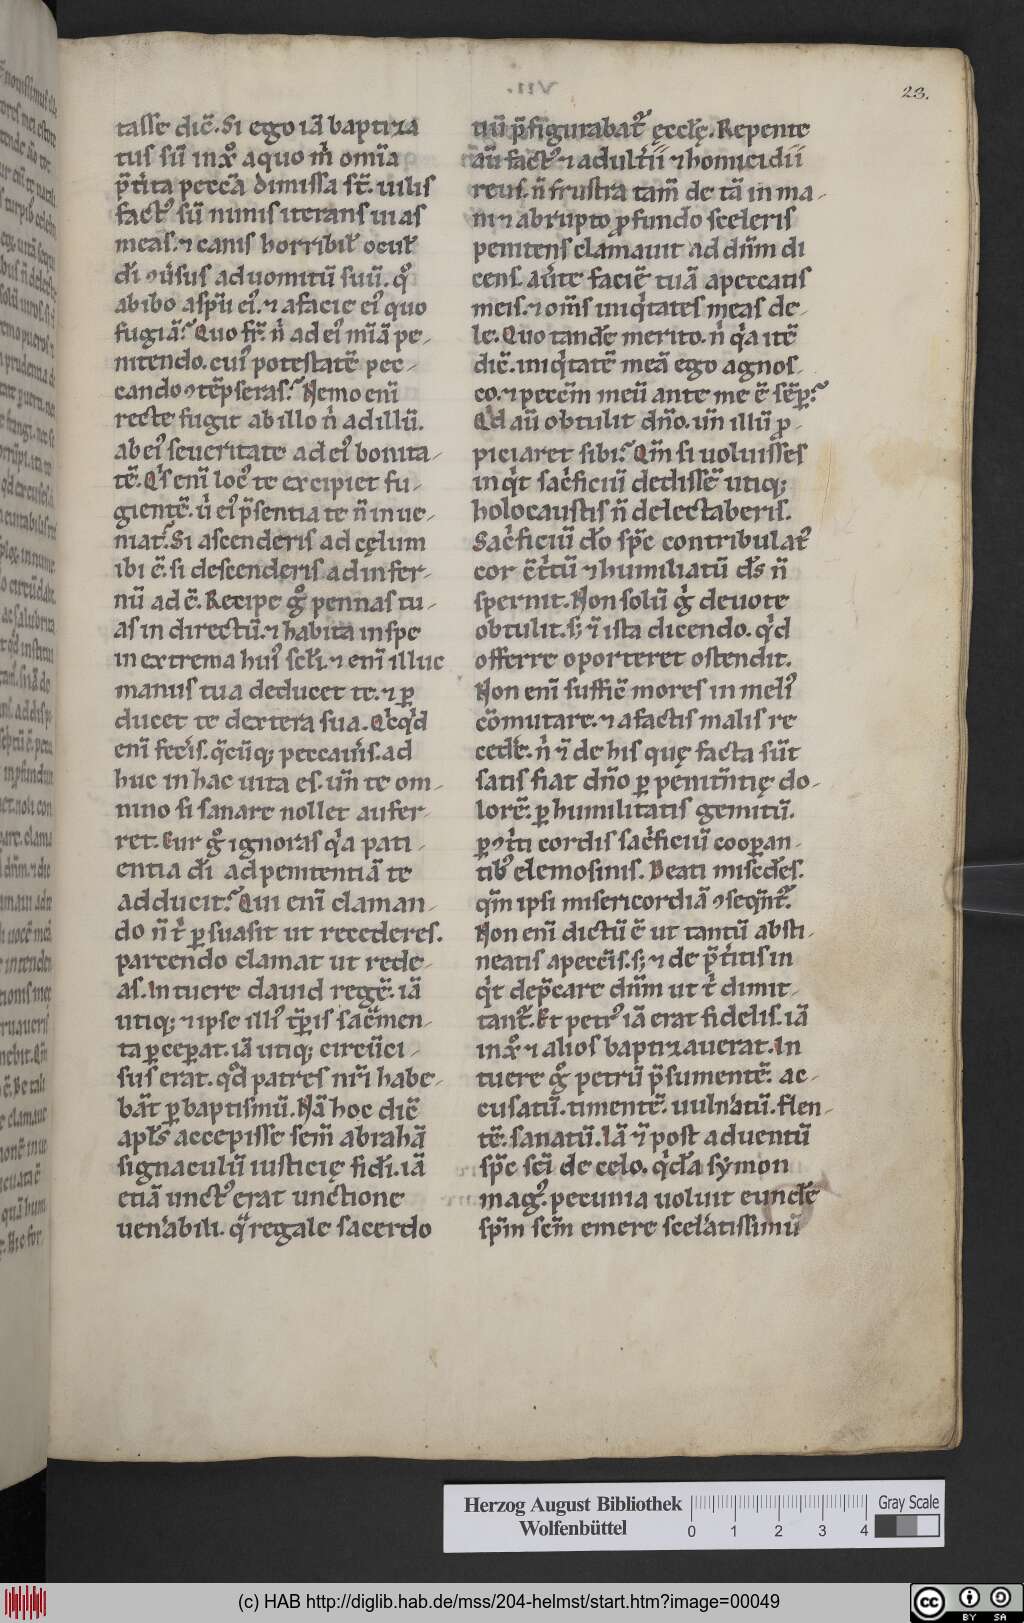 23.
tasse dic̄. Si ego iā baptiza
tus sū in xp̊ a quo m̍ om̄ia
p̄t̍ita peccā dimissa st̄. uilis
fact᾽ sū nimis iterans uias
meas. ⁊ canis horribil̄ ocul̄
d̄i ꝯu̍sus ad uomitū suū. q̊
abibo a sp̄u ei᾽. ⁊ a facie ei᾽ quo
fugiā? Quo fr̄. n̍ ad ei᾽ m̄iā pe-
nitendo. cui᾽ potestatē pec-
cando ꝯtēpseras? Nemo enī
recte fugit ab illo n̍ ad illū.
ab ei᾽ seueritate ad ei᾽ bonita-
tē. Q̍s enī loc᾽ te excipiet fu-
gientē. u̍ ei᾽ p̄sentia te n̄ inue-
niat? Si ascenderis ad cęlum
ibi ē. si descenderis ad infer-
nū ad ē. Recipe g̊ pennas tu-
as in directū. ⁊ habita in spe
in extrema hui᾽ scl̄i. ⁊ enī illuc
manus tua deducet te. ⁊ ꝑ
ducet te dextera sua. Q̍cq̍d
enī fecis̍. q̄cūq; peccaūis̍. ad
huc in hac uita es. un̄ te om-
nino si sanare nollet aufer-
ret. Cur g̊ ignoras q̍a pati-
entia d̄i ad penitentiā te
adducit? Qui enī claman-
do n̄ t̍ ꝑsuasit ut recederes.
parcendo clamat ut rede-
as. Intuere dauid regē. iā
utiq; ⁊ ipse illi᾽ tp̄ris sac̄men-
ta ꝑceꝑat. iā utiq; circūci-
sus erat. qd̊ patres nr̄i habe-
bāt ꝑ baptismū. Nā hoc dic̄
apl̄s accepisse sem̄ abrahā
signaculū iusticię fid̄i. iā
etiā unct᾽ erat unctione
uen̍abili. q̄ regale sacerdo
tiū p̄figurabat᾽ ęccl̄ę. Repente
aū fact᾽ ⁊ adult̍ii ⁊ homicidii
reus. n̄ frustra tam̄ de tā inma-
ni ⁊ abrupto ꝓfundo sceleris
penitens clamauit ad dn̄m di
cens. au̍te faciē tuā a peccatis
meis. ⁊ om̄s iniq̍tates meas de-
le. Quo tandē merito. n̍ q̍a itē
dic̄. iniq̍tatē meā ego agnos-
co. ⁊ peccm̄ meū ante me ē sēꝑ?
Q̍d aū obtulit dn̄o. un̄ illū ꝓ-
piciaret sibi? Qm̄ si uoluisses
inq̍t sac̍ficiū dedissē utiq;
holocaustis n̄ delectaberis.
Sac̍ficiū d̄o sp̄c contribulat᾽
cor c̄t̍tū ⁊ humiliatū d̄s n̄
spernit. Non solū g̍ deuote
obtulit. s; ⁊ ista dicendo. q̍d
offerre oporteret ostendit.
Non enī sufficē mores in meli᾽
cōmutare. ⁊ a factis malis re
cedē. n̍ ⁊ de his quę facta sūt
satis fiat dn̄o ꝑ penitn̄tię do-
lorē. ꝑ humilitatis gemitū.
ꝑ ꝯt̍ti cordis sac̍ficiū cooꝑan-
tib᾽ elemosinis. Beati misc̄des.
qm̄ ipsi misericordiā ꝯseqn̄t᾽.
Non enī dictū ē ut tantū absti-
neatis a pecc̄is. s; ⁊ de p̄t̍itis in
q̍t dep̄care dn̄m ut t̍ dimit-
tant᾽. Et petr᾽ iā erat fidelis. iā
in xp̊ ⁊ alios baptizauerat. In
tuere g̊ petrū p̄sumentē. ac-
cusatū. timentē. uuln̍atū. flen-
tē. sanatū. Iā ⁊ post aduentū
sp̄c sc̄i de celo. q̍dā symon
mag᾽. pecunia uoluit eundē
sp̄m scm̄ emere scel̍atissimū
Herzog August Bibliothek
Wolfenbüttel
0 1 2 3 4
Gray Scale
(c) HAB http://diglib.hab.de/mss/204-helmst/start.htm?image=00049
cc BY SA